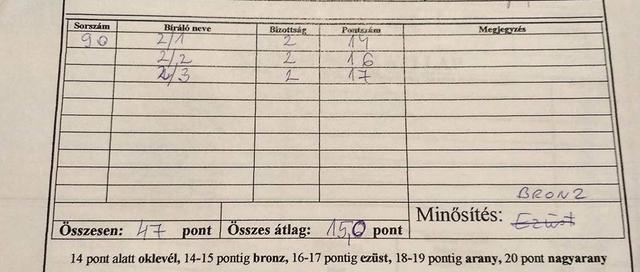 Sorszám Bíráló neve Bizottság Pontszám Megjegyzés
90 2/1 2 14
2/2 2 16
2/3 2 17
BRONZ
Összesen: 47 pont Összes átlag: 15,0 pont Minősítés: Ezüst
14 pont alatt oklevél, 14-15 pontig bronz, 16-17 pontig ezüst, 18-19 pontig arany, 20 pont nagyarany